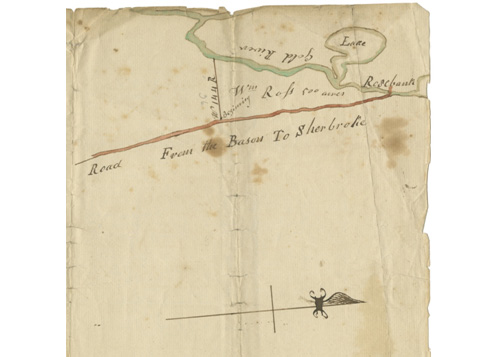 Gold River
Lake
Wm Ross 500 acres
Rosebank
Beginning
Road From the Bason To Sherbroke